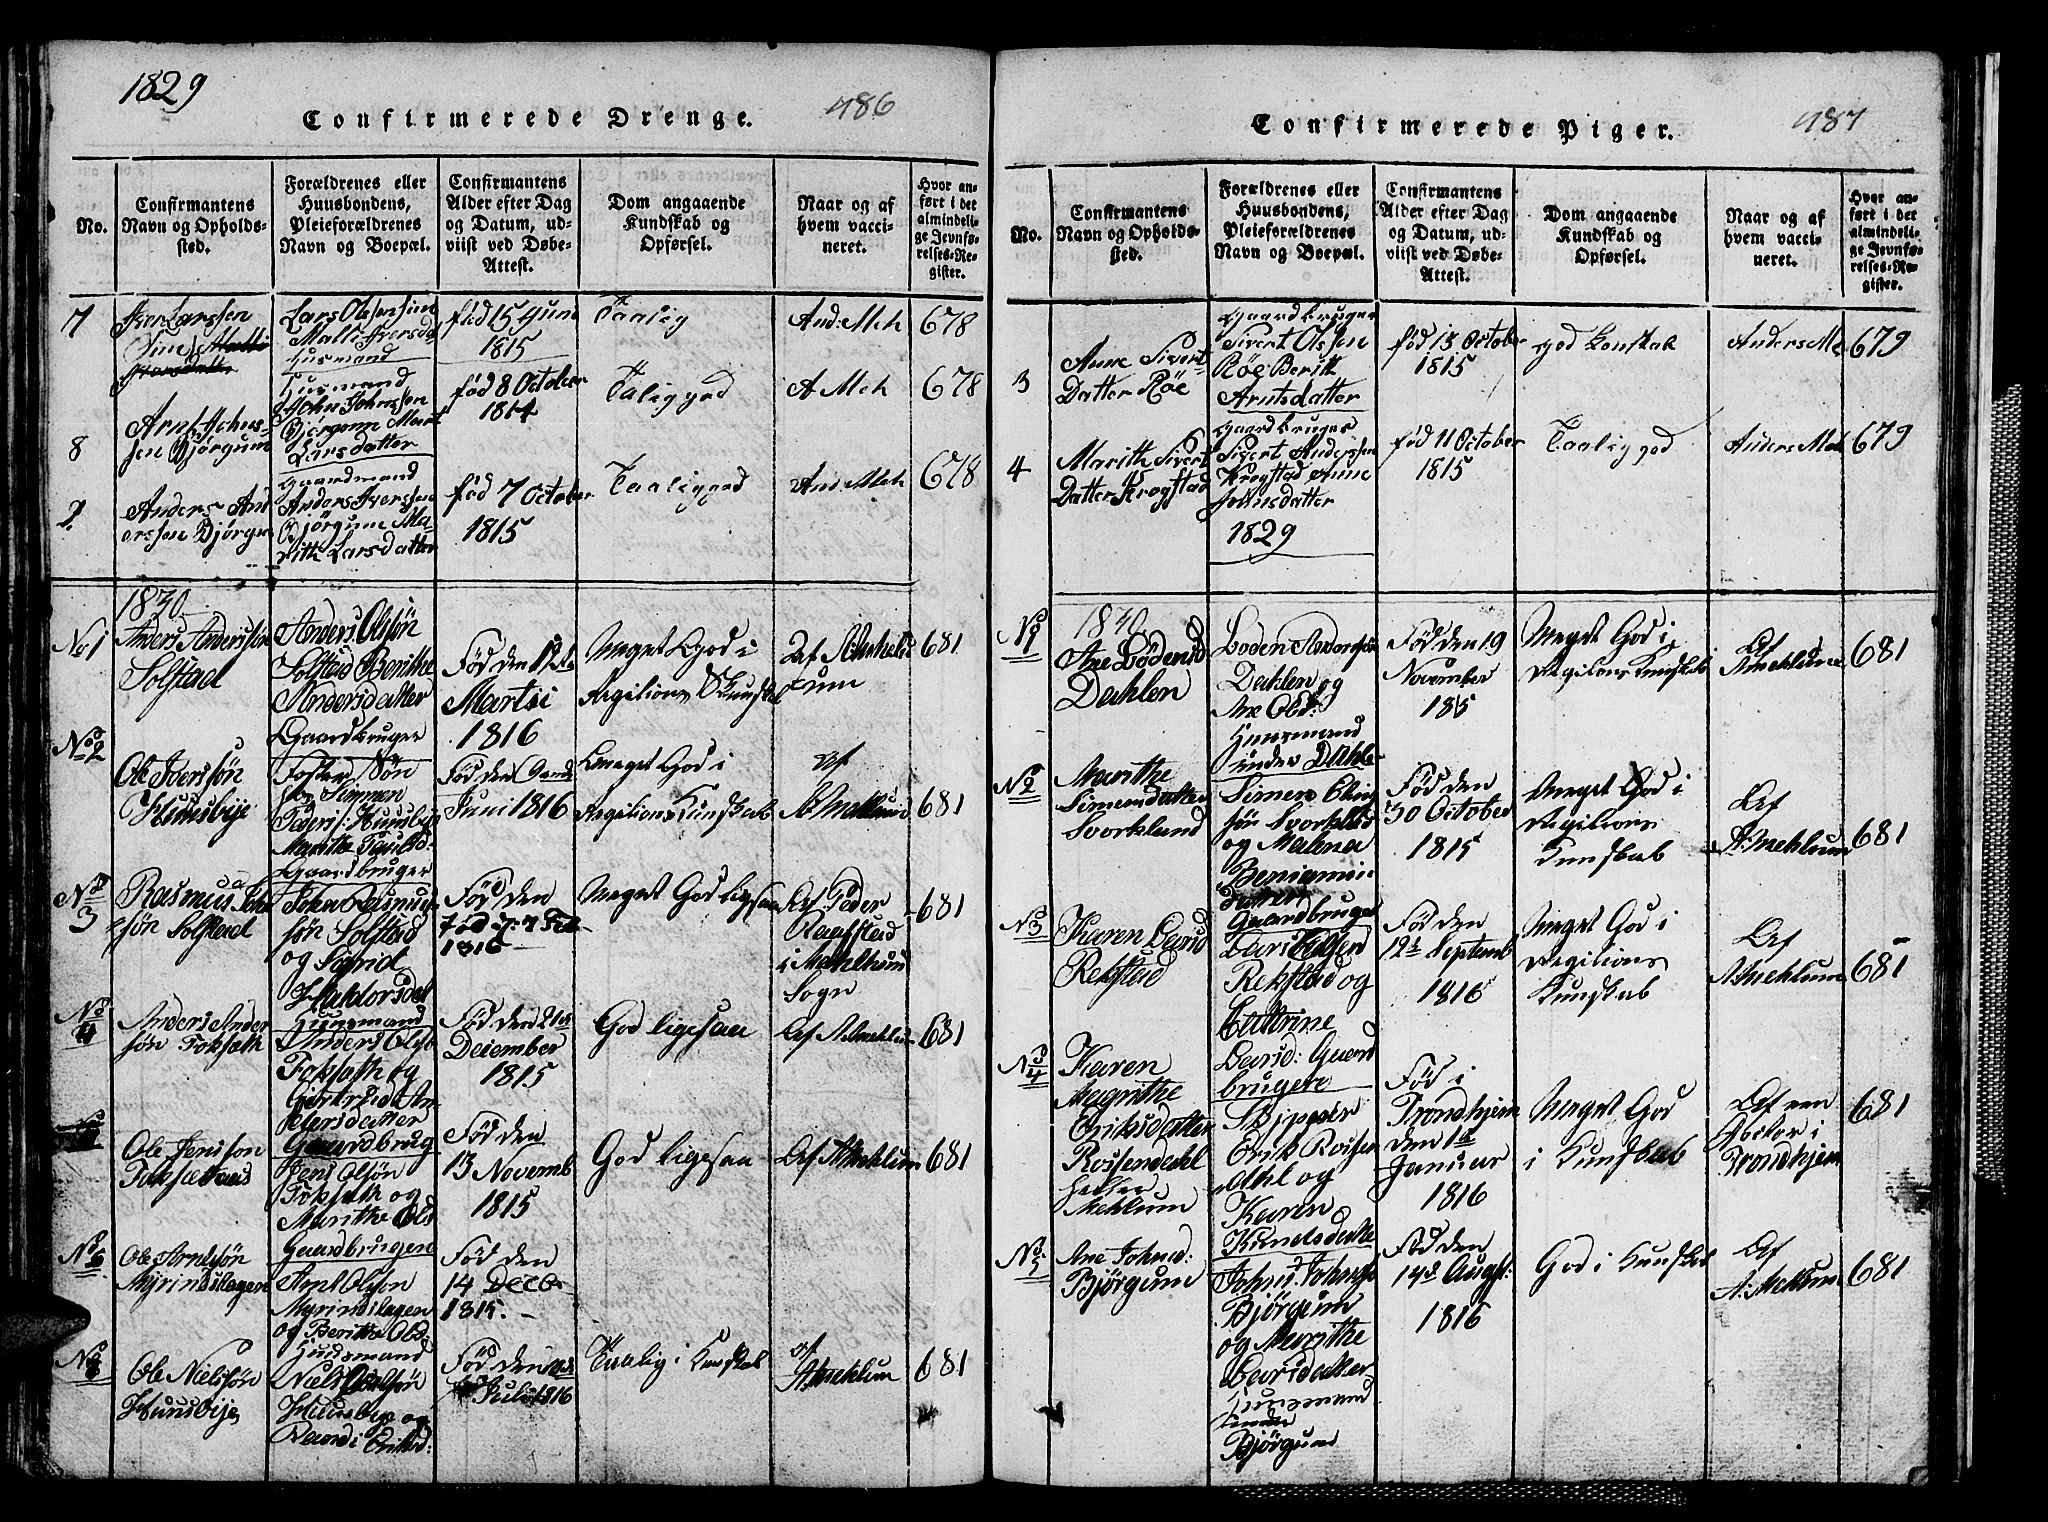 1829
Confirmerede Drenge.
486
No.
Confirmantens
Navn og Opholds-
sted.
Forældrenes eller
Huusbondens,
Pleieforældrenes
Navn og Boepæl.
Confirmantens
Alder efter Dag
og Datum, ud-
viist ved Døbe-
Attest.
Dom angaaende
Kundskab og
Opførsel.
Naar og af
hvem vacci-
neret.
Hvor an-
ført i det
almindeli-
ge Jevnfø-
relses-Re-
gister.
7
Iver Larssen
Lars Olsen
Malli Iversda
Husmand
fød 15 Juni
1815
Taalig
And: Meh
678
8
Arnt Johns-
sen Bjørgum
Husmand
John Johnssen
Bjørgum Marit
Larsdatter
fød 8 October
1814
Talig god
A Meh
678
9
Anders And
erssen Bjørgum
Gaardmand
Anders Iverssen
Bjørgum Ma-
rith Larsdatter
fød 7 October
1815
Taalig god
And: Meh
678
1830
No 1
Anders Anderssøn
Solstad
Anders Olssøn
Solstad Berithe
Andersdatter
Gaardbruger
Fød den
Martii
1816
Meget God i
Religions Kundskab
Af A Mehl
um
681
No 2
Ole Iverssøn
Huusbije
Foster Søn
Simmen
Peders: Huusbije
Marithe
Gaardbruger
Fød den
Juni 1816
Meget God i
Religions Kundskab
Af
A. Mehlum
681
No 3
Rasmus John
søn Solstad
John Rasmus
søn Solstad
og Sigrid
Haldorsdat
Huusmand
Fød den
1816
Meget God ligesaa
Af Peder
i Mehlhuus
Sogn
681
No 4
Anders Ander
søn Foksæth
Anders Olsøn
Foksæth og
Gaardbrug
Fød den 21de
December
1815
God ligesaa
Af A. Mehlum
681
Ole Jenssøn
Jens Olsøn
Foksæth og
Marithe Olsd
Gaardbrugen
Fød den
13 Novemb
1815
God ligesaa
Af A. Mehlum
681
No 6
Ole Arntsøn
Myrindslagen
Arnt Olsøn
Myrindslagen
og Berithe Olsd:
Huusmand
Fød den
14 Decb
1815.
No
Ole Nielssøn
Huusbije
Niels Olssøn
Huusbye og
Fød den
Juli 1816
Taalig i Kunskab
af
A. Mehlum
681
Confirmerede Piger.
487
No.
Confirmantens
Navn og Opholds-
sted.
Forældrenes eller
Huusbondens,
Pleieforældrenes
Navn og Boepæl.
Confirmantens
Alder efter Dag
og Datum, ud-
viist ved Døbe-
Attest.
Dom angaaende
Kundskab og
Opførsel.
Naar og af
hvem vacci-
neret.
Hvor an-
ført i det
almindeli-
ge Jevnfø-
relses-Re-
gister.
3
Anne Sivert
Datter Røe
Gaardbruger
Sivert Olssen
Røe Beritt
Arntsdatter
fød 13 October
1815
god Konskab
Anders Me
679
4
Marith Sivert
Datter Krogstad
Gaardbruger
Sivert Anderssen
Krogstad Anne
Johnsdatter
1829
fød 11 October
1815
Taalig god
Anders Meh
679
1830
No 1
Ane Lodensd
Dahlen
Loden Andersøn
Dahlen og
Ane Olsd:
Huusmand
under Dahle
Fød den 19
November
1815
Meget God i
Religions Kundskab
Af
A. Mehlum
681
No 2
Marithe
Simensdatter
Svorklund
Simen
søn Svorklund
og Malena
Beniamin
datter
Gaardbruger
Fød den
30 October
1815
Meget God i
Religions
Kunskab
Af
A. Mehlum
681
No 3
Karen Larsd
Rekstad
Lars
Rekstad og
Cathrine
Larsd: Gaard
brugere
Fød den
12te Septemb
1816
Meget God i
Religions
Kunskab
Af
A. Mehlum
681
No 4
Karen
Magrithe
Eriksdatter
Rosendahl
heller
Mehlum
Skipper
Erik Rosen
dahl og
Karen
Knudsdatter
Fød i
Trondhjem
den 1te
Januar
1816
Meget God
i Kunskab
Af een
Doctor i
Trondhjem
681
No 5
Ane Johnsd:
Bjørgum
Johns: Johnsøn
Bjørgum
og Marithe
Larsdatter
Huusmand
under
Bjørgum
Fød den
14de Augst:
1816
God i Kunskab
Af
A. Mehlum
681